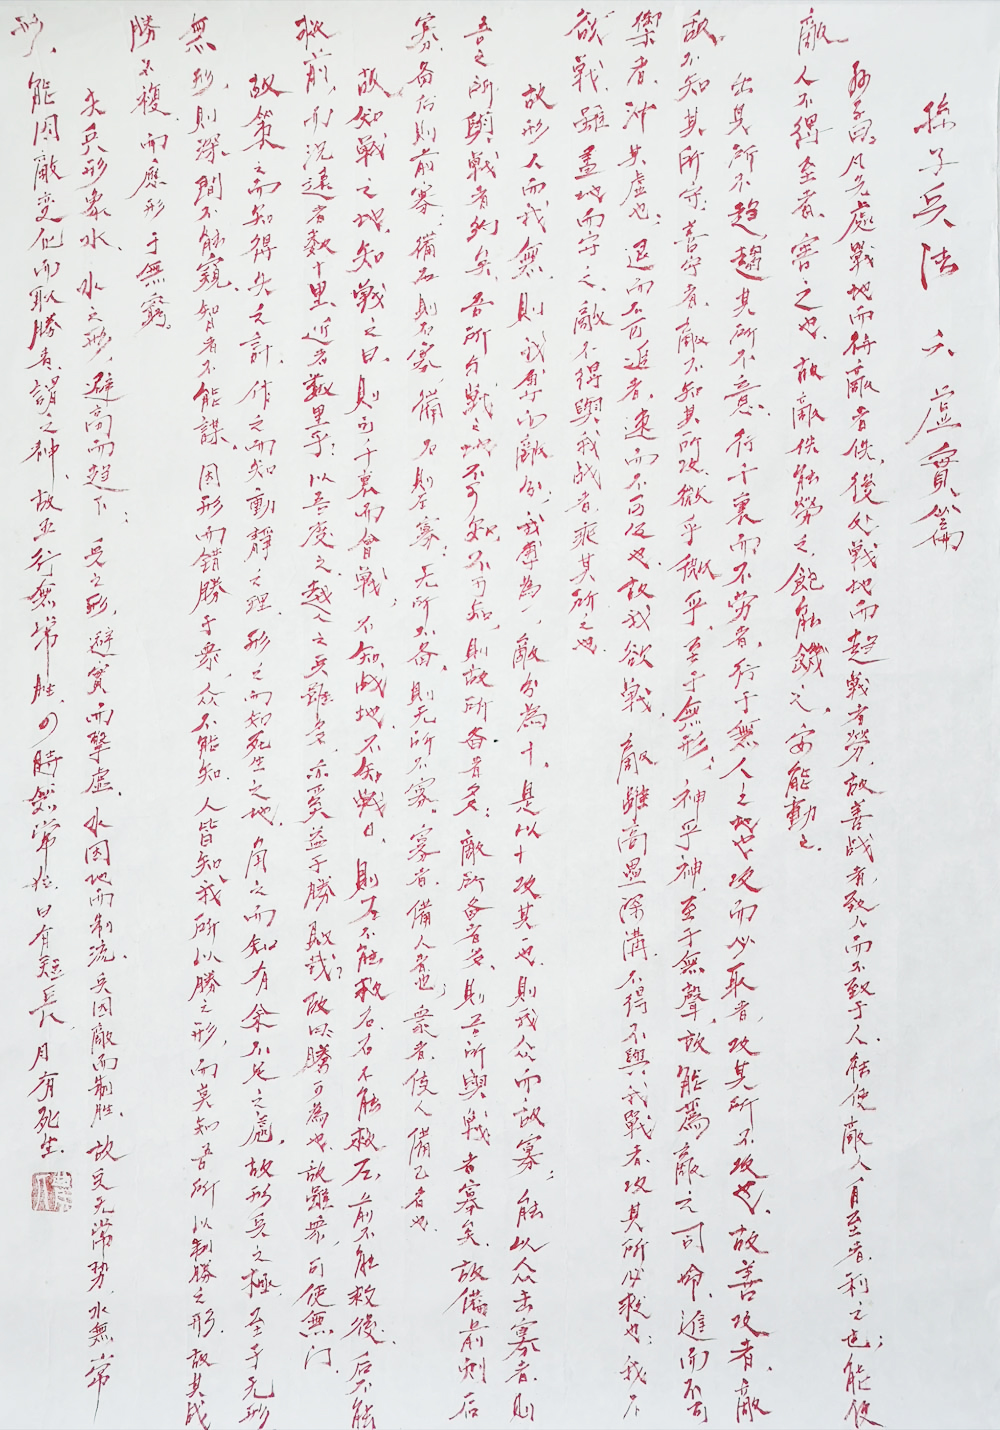 孫子兵法 六 虛實篇
孫子曰：凡先處戰地而待敵者佚，後处戰地而趨戰者勞，故善战者，致人而不致于人。能使敵人自至者，利之也；能使
敵人不得至者，害之也，故敵佚能勞之，飽能饑之，安能動之。
出其所不趨，趨其所不意。行千裏而不劳者，行于無人之地也，攻而必取者，攻其所不攻也，故善攻者，敵
敌不知其所守，善守者，敵不知其所攻，微乎微乎，至于無形；神乎神，至于無聲，故能為敵之司命，進而不可
禦者，沖其虛也；退而不可追者，速而不可及也，故我欲戰，敵雖高壘深溝，不得不與我戰者，攻其所必救也；我不
欲戰，雖畫地而守之，敵不得與我战者，乖其所之也。
故形人而我無，則我專而敵分；我專為一，敵分為十，是以十攻其一也，則我众而敌寡；能以人众击寡者，則
吾之所與戰者約矣。吾所与戰之地不可知，不可知，則敌所备者多；敵所备者多，則吾所與戰者寡矣。故備前則后
寡，备后則前寡；備左則右寡，備右則左寡；无所不备，則无所不寡。寡者，備人者也；衆者，使人備己者也。
故知戰之地，知戰之日，則可千裏而會戰；不知战地，不知战日，則左不能救右，右不能救左，前不能救後，后不能
救前，而況遠者數十里，近者數里乎；以吾度之，越人之兵雖多，亦奚益于勝敗哉？故曰勝可為也，敌雖衆，可使無鬥。
故策之而知得失之計，作之而知動靜之理，形之而知死生之地，角之而知有余不足之處，故形兵之極，至于无形
無形，則深間不能窺，智者不能謀。因形而錯勝于衆，众不能知，人皆知我所以勝之形，而莫知吾所以制勝之形，故其战
勝不複，而應形于無窮。
夫兵形象水，水之形，避高而趨下；兵之形，避實而擊虛，水因地而制流，兵因敵而制胜，故兵无常势，水無常
形，能因敵变化而取勝者，謂之神，故五行無常胜，四時無常位，日有短長，月有死生。